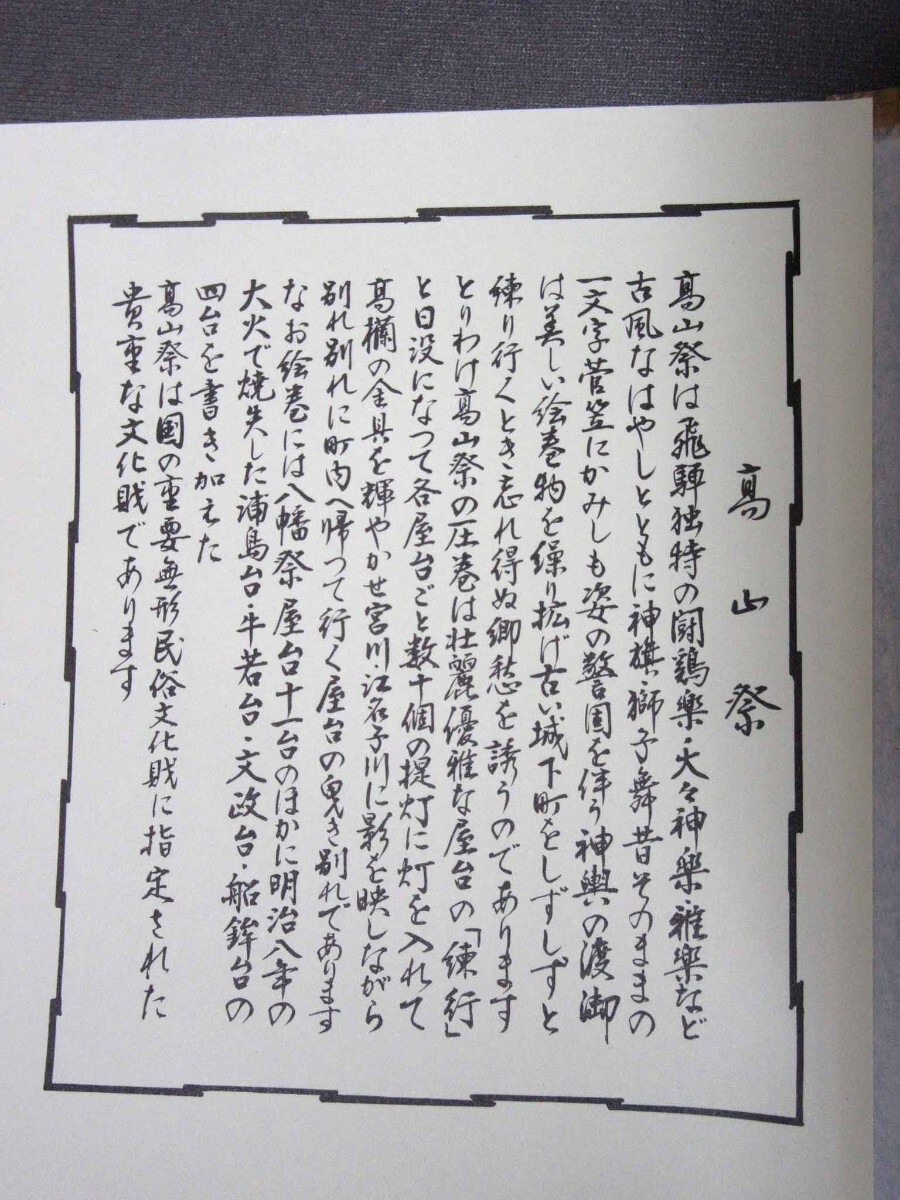 高山祭
高山祭は飛騨独特の闘鶏楽・大々神楽・雅楽など
古風なはやしとともに神旗・獅子舞昔そのままの
一文字菅笠にかみしも姿の警固を伴う神輿の渡御
は美しい絵巻物を繰り拡げ古い城下町をしずしずと
練り行くとき忘れ得ぬ郷愁を誘うのであります
とりわけ高山祭の圧巻は壮麗優雅な屋台の「練行」
と日没になつて各屋台ごと数十個の提灯に灯を入れて
高欄の金具を輝やかせ宮川・江名子川に影を映しながら
別れ別れに町内へ帰つて行く屋台の曳き別れであります
なお絵巻には八幡祭屋台十一台のほかに明治八年の
大火で焼失した浦島台・牛若台・文政台・船鉾台の
四台を書き加えた
高山祭は国の重要無形民俗文化財に指定された
貴重な文化財であります